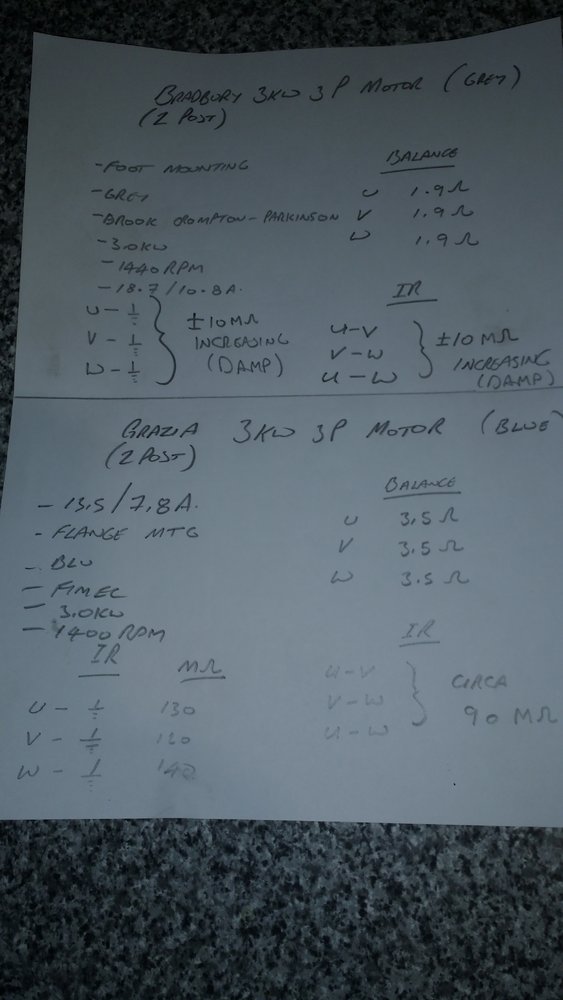 BRADBURY 3KW 3P MOTOR (GREY)
(2 POST)
- FOOT MOUNTING
- GREY
- BROOK CROMPTON - PARKINSON
- 3.0KW
- 1440 RPM
- 18.7 / 10.8A.
U - ⏚
V - ⏚
W - ⏚
±10MΩ
INCREASING
(DAMP)
BALANCE
U 1.9Ω
V 1.9Ω
W 1.9Ω
IR
U-V
V-W
U-W
±10MΩ
INCREASING
(DAMP)
GRAZIA 3KW 3P MOTOR (BLUE)
(2 POST)
- 13.5 / 7.8A.
- FLANGE MTG
- BLU
- FIMEC
- 3.0KW
- 1400 RPM
IR MΩ
U - ⏚ 130
V - ⏚
W - ⏚ 140
BALANCE
U 3.5Ω
V 3.5Ω
W 3.5Ω
IR
U-V
V-W
U-W
CIRCA
90 MΩ